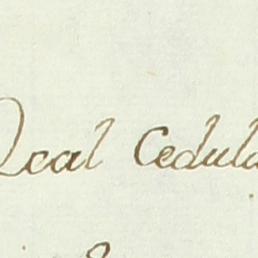 Real Cedula